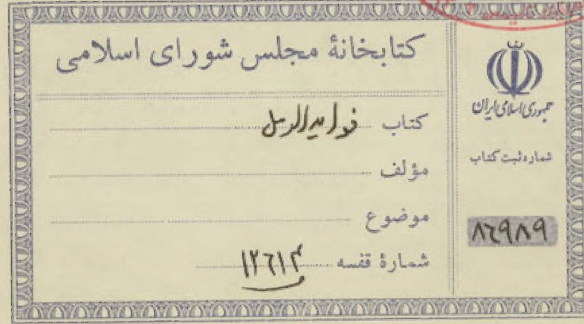 کتابخانهٔ مجلس شورای اسلامی
کتاب فوایدالرمل
مؤلف
موضوع
شمارهٔ قفسه ۱۲۶۱۴
جمهوری اسلامی ایران
شماره ثبت کتاب
۸۶۹۸۹